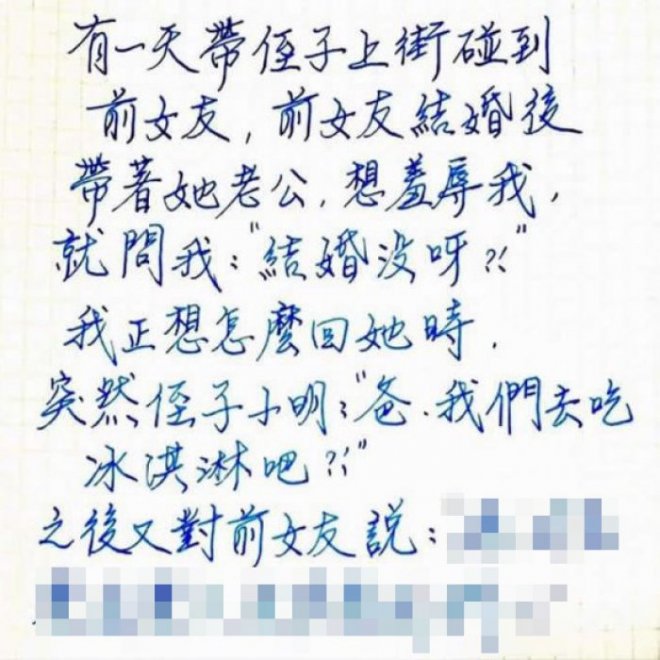 有一天帶侄子上街碰到
前女友,前女友結婚後
帶著她老公,想羞辱我,
就問我:"結婚没呀?!"
我正想怎麼回她時,
突然侄子小明:"爸.我們去吃
冰淇淋吧?!"
之後又對前女友說: